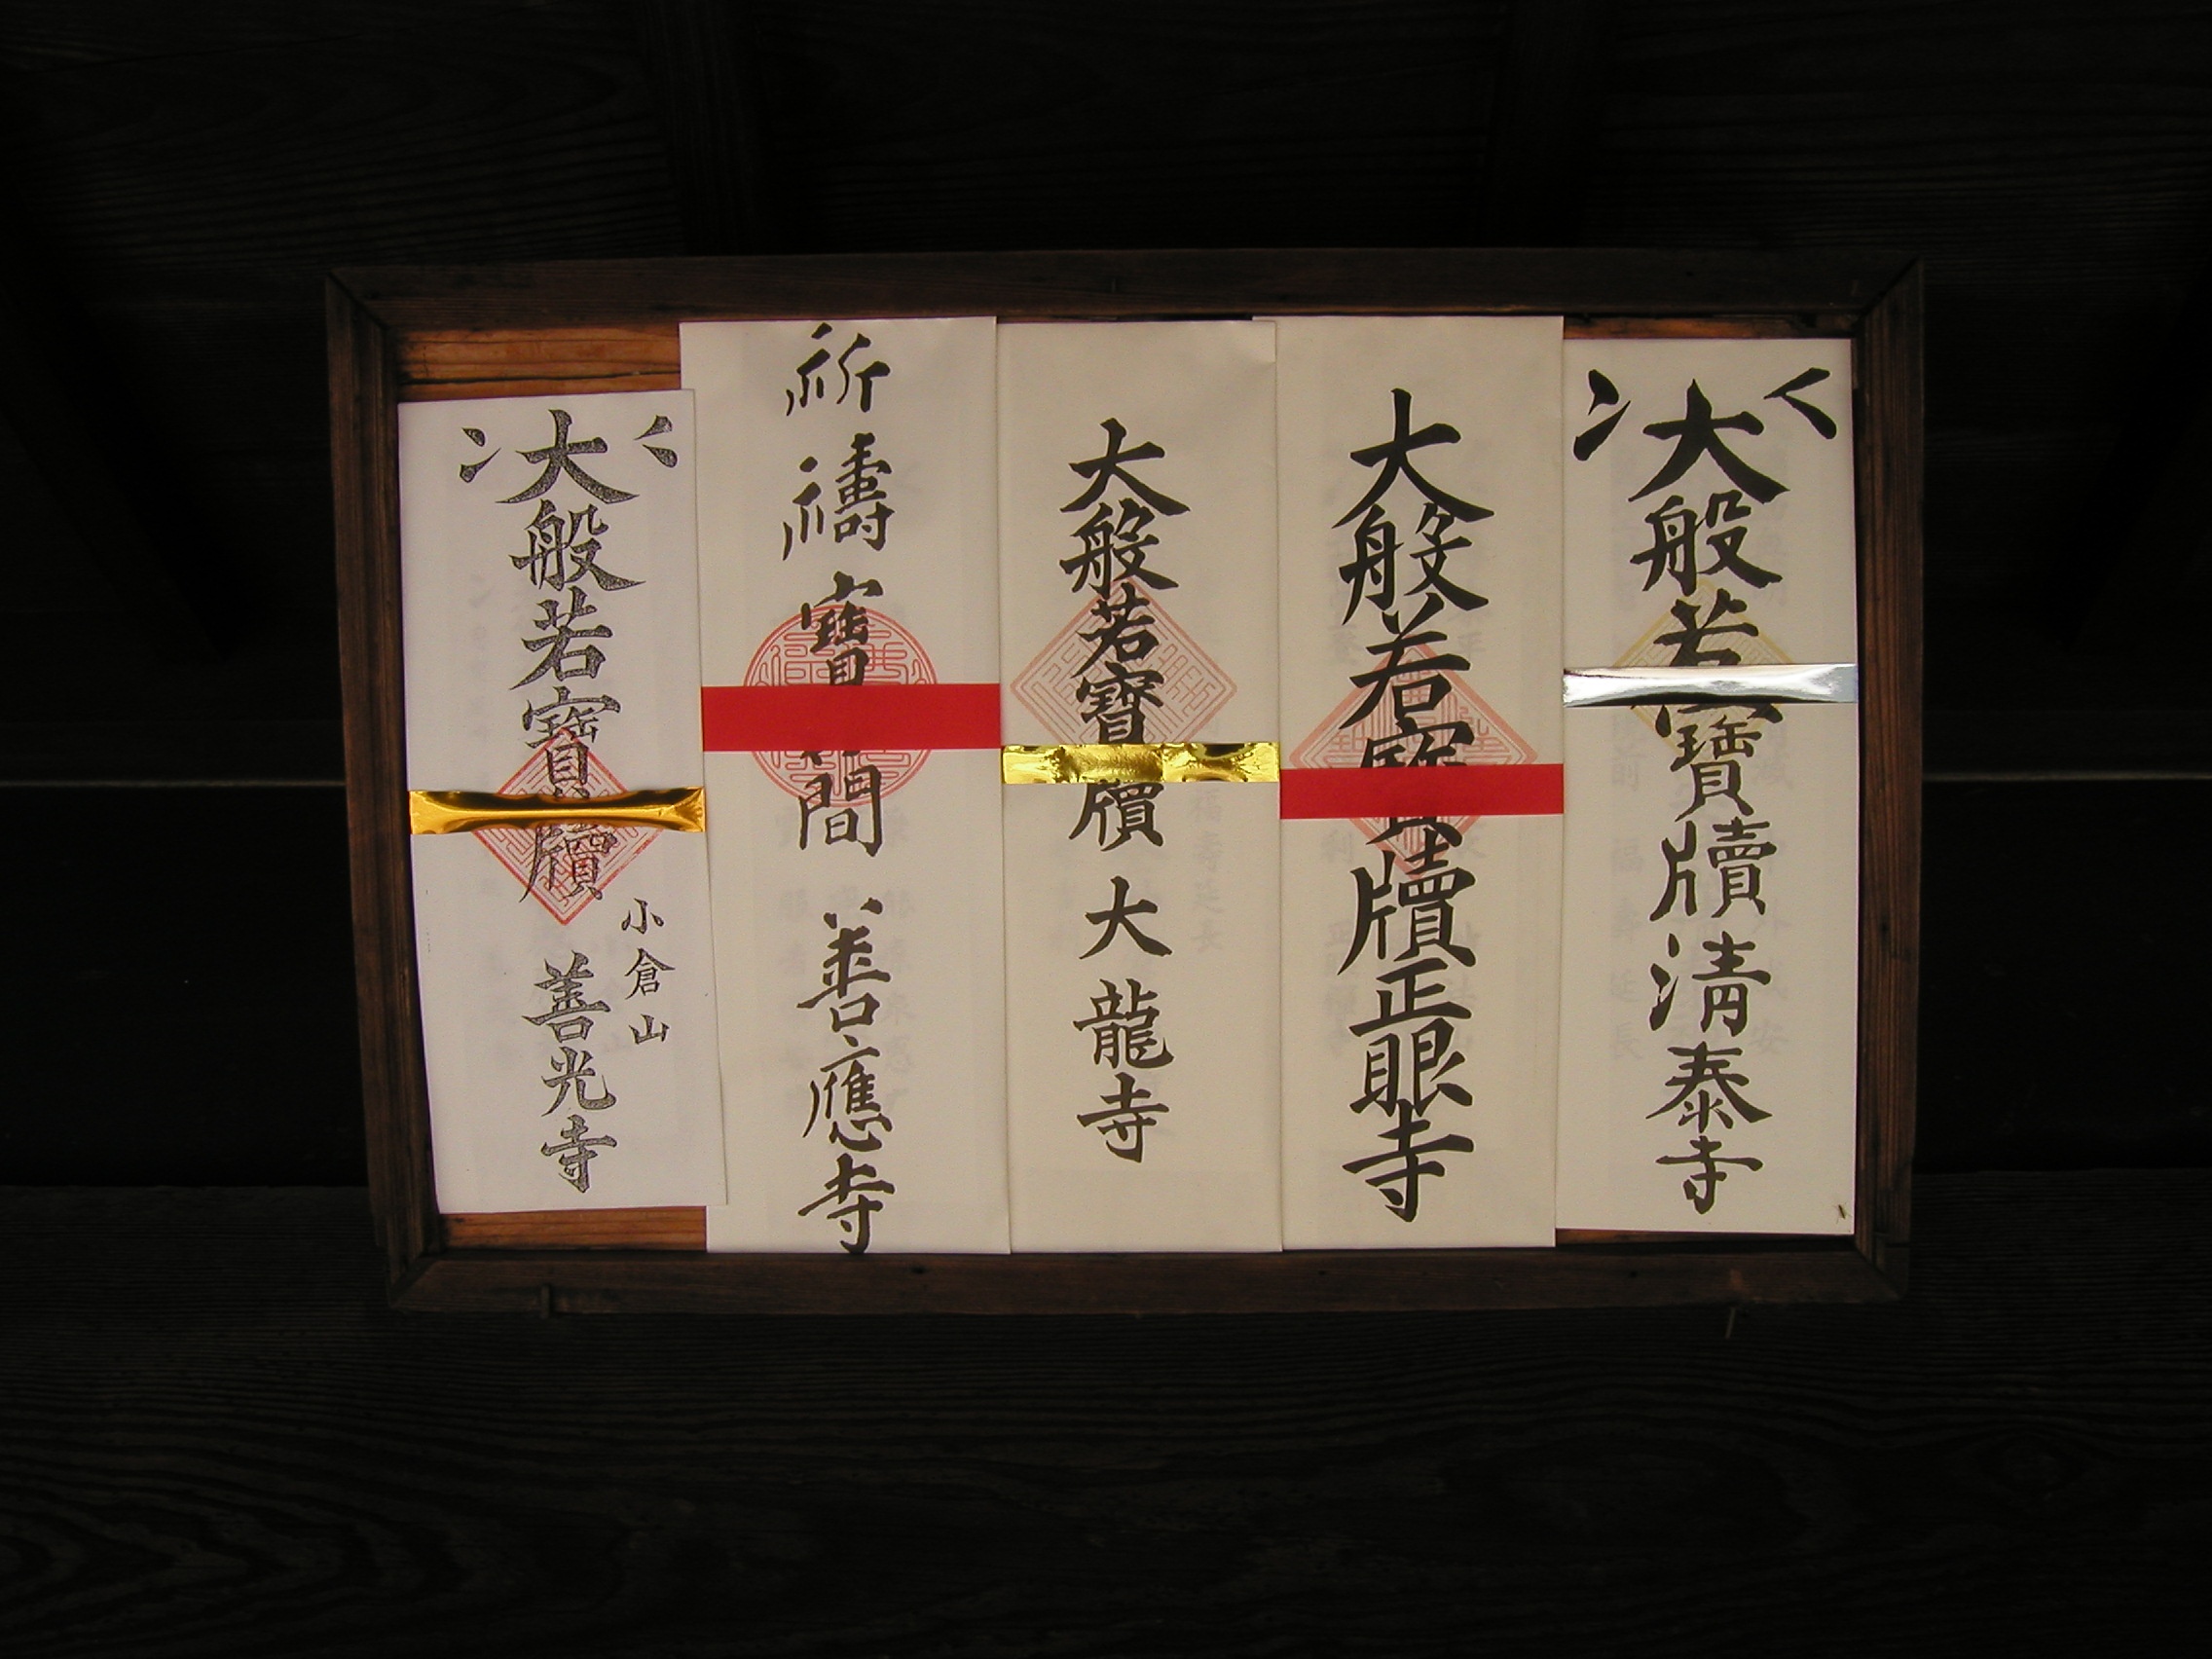 大般若寶牘清泰寺
大般若寶牘正眼寺
大般若寶牘 大龍寺
祈禱寶簡 善應寺
大般若寶牘
小倉山
善光寺